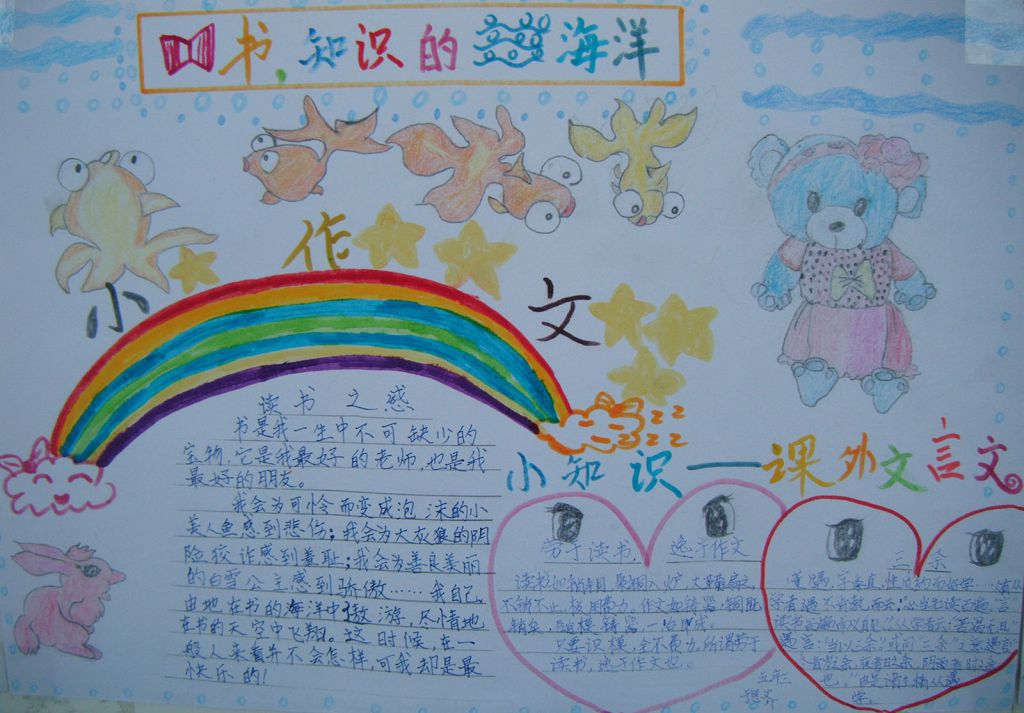 书,知识的海洋
小作文
读书之感
书是我一生中不可缺少的
宝物,它是我最好的老师,也是我
最好的朋友。
我会为可怜而变成泡沫的小
美人鱼感到悲伤;我会为大灰狼的阴
险狡诈感到羞耻;我会为善良美丽
的白雪公主感到骄傲……我自己
由地在书的海洋中傲游,尽情地
在书的天空中飞翔。这时候,在一
般人来看并不会怎样,可我却是最
快乐的!
小知识——课外文言文
劳于读书,逸于作文
读书如销铜,聚铜入炉,大鞴扇之,
不销不止,极用费力。作文如铸器,铜既
销矣,随模铸器,一冶即成。
只要识模,全不费力,所谓劳于
读书,逸于作文也。
三余
董遇,字季直,性质讷而好学
学者,遇不肯教,而云:"必当先读百遍",言
读书百遍
遇言:"当以三余。"或问"三余"之意,遇言
冬者岁余,夜者日之余,阴雨者时之余
也。"
学。
五年三